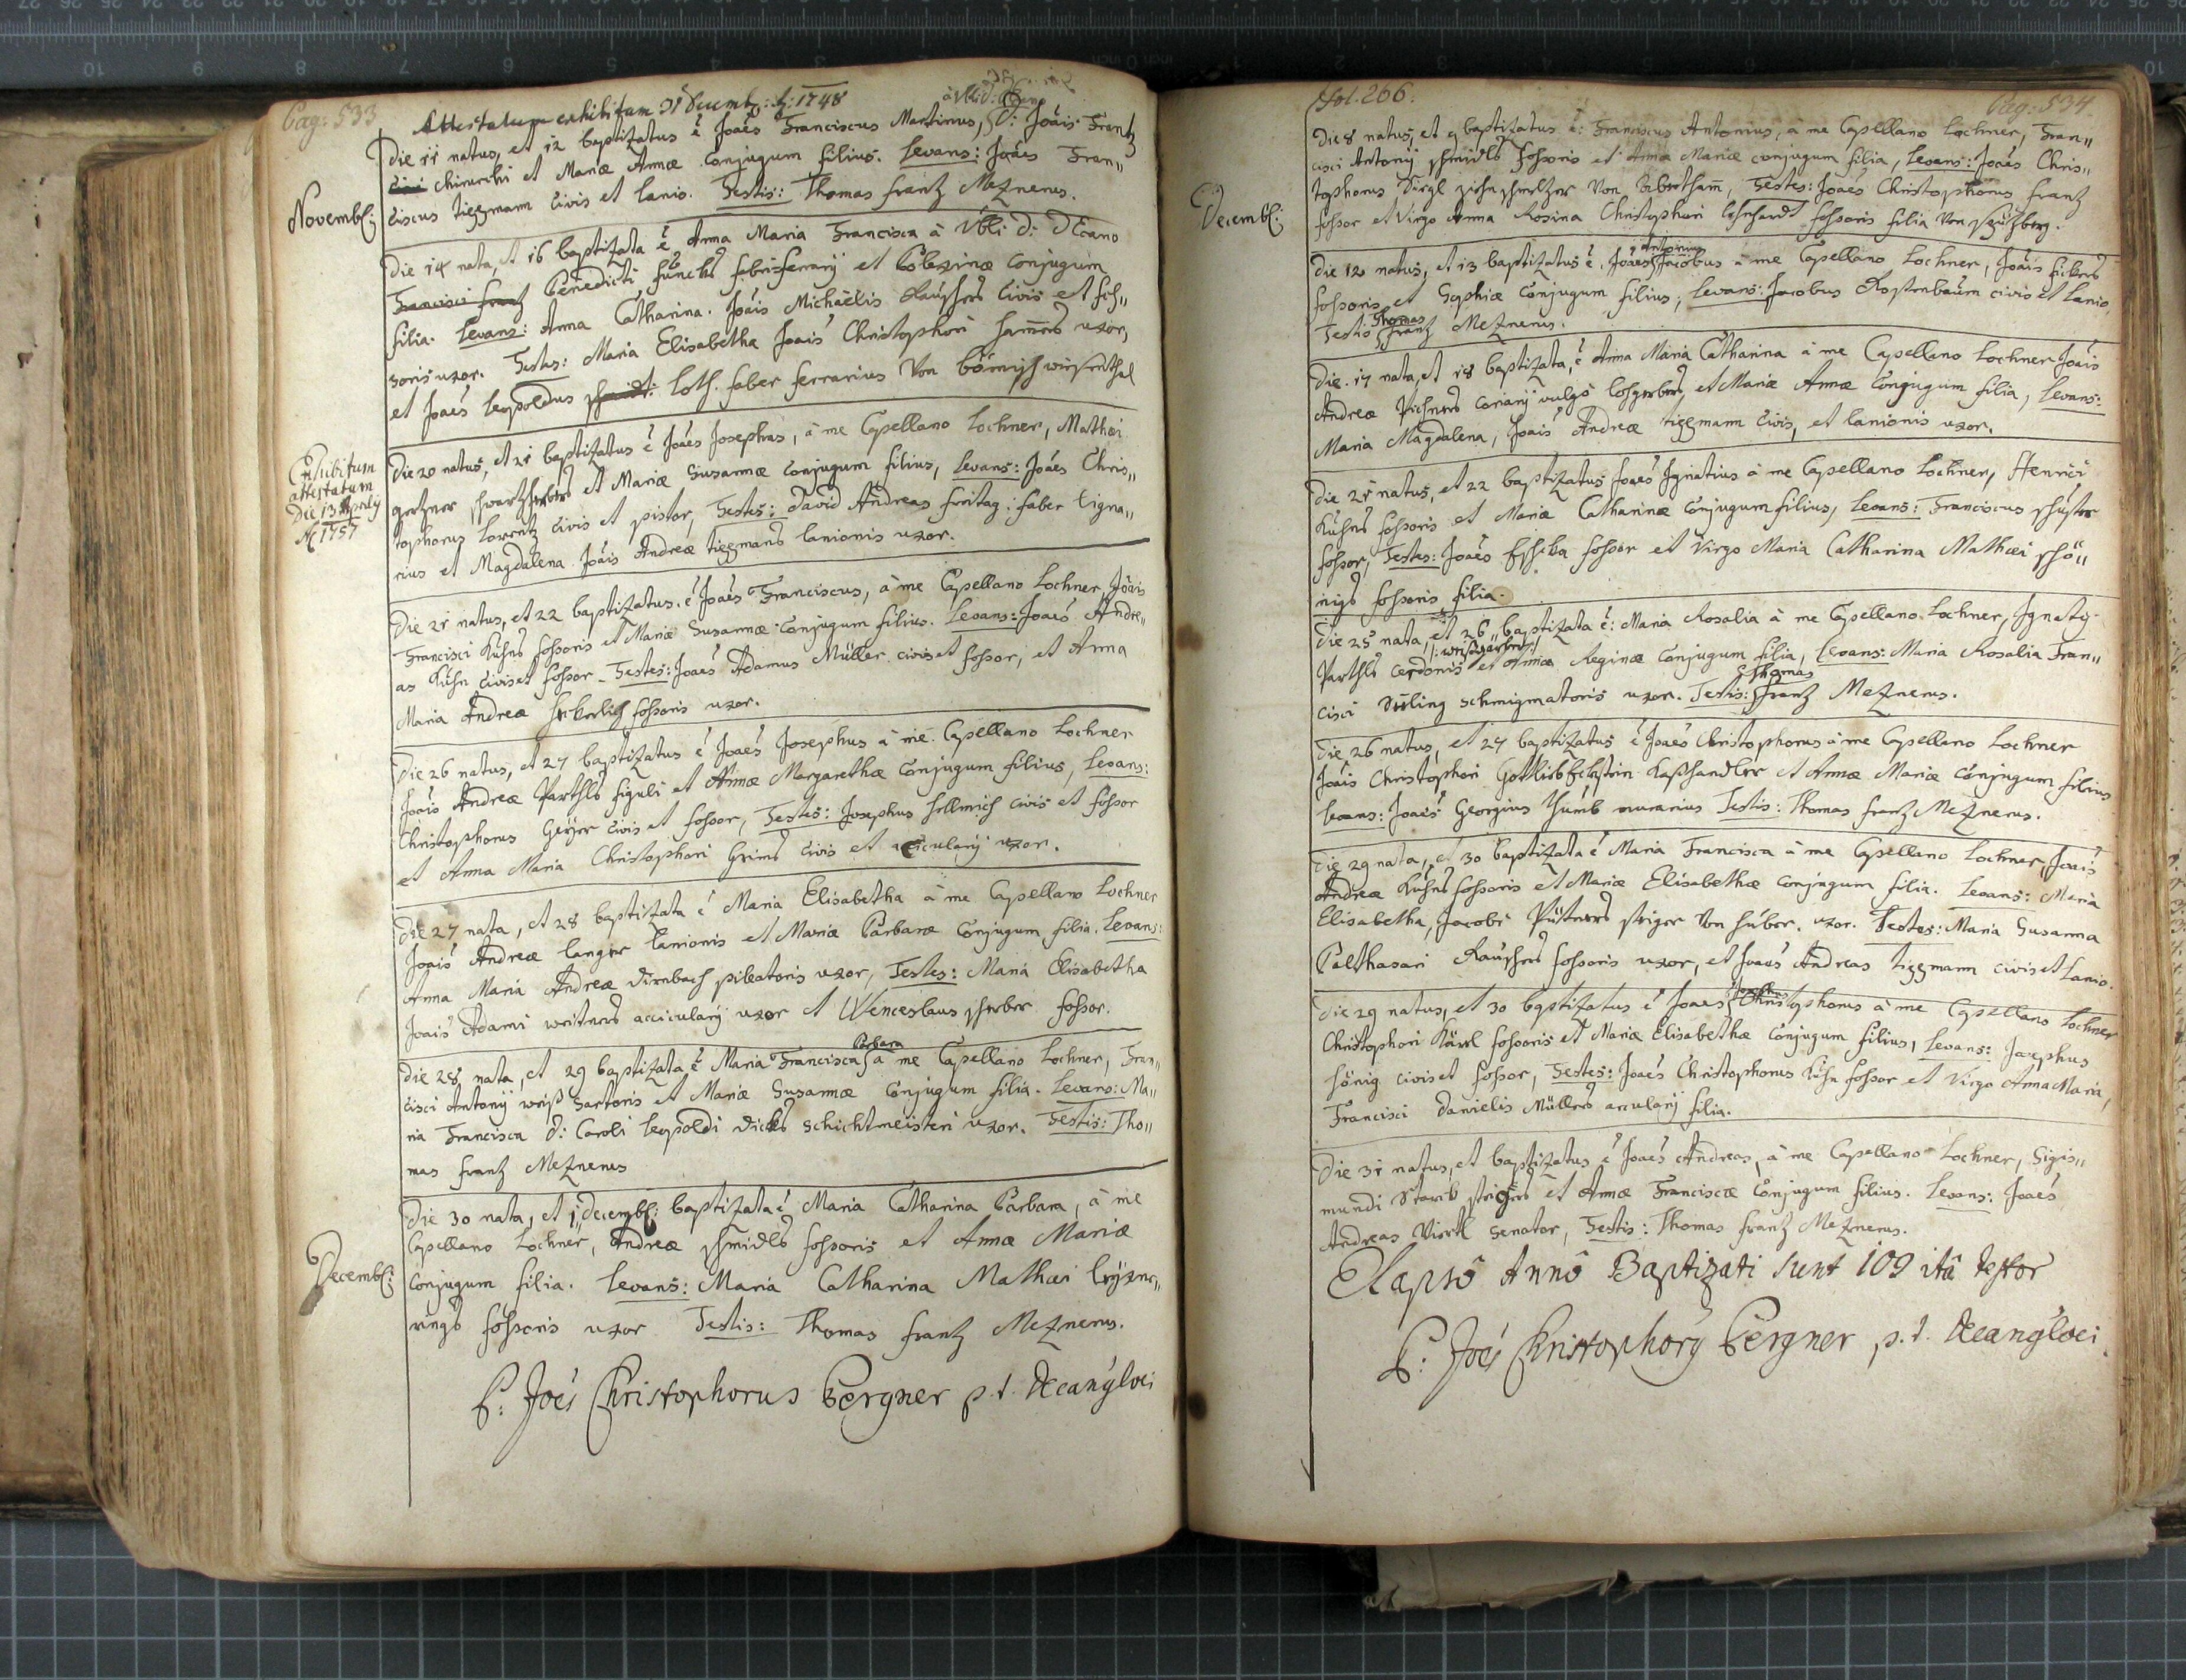 Pag: 533
Attestatum exhibitum Decemb: A: 1748
Die 11 natus, et 12 baptizatus ė Joaēs Franciscus Martinus, D: Joāis Frantz
chirurchi et Mariæ Annæ Conjugum filius. Levans: Joāes Fran„
ciscus tiezmann Civis et lanio. Testis: Thomas frantz Meznerus.
Novembɭ:
Die 14 nata, et 16 baptizata ė Anna Maria Francisca â d: dEcano
Francisci frantz Benedicti fabriferrarÿ et Conjugum
filia. Levans: Anna Catharina. Joāis Michaëlis Civis et fos„
soris uxor. Testes: Maria Elisabetha Joāis Christophori uxor,
et Joaēs leopoldus loth. faber ferrarius Von
Exhibitum
attestatum
Die 13 Aprilÿ
A 1757
Die 20 natus, et 21 baptizatus ė Joāes Josephus, â me Capellano Lochner, Mathæi
et Mariæ Susannæ Conjugum filius, Levans: Joāes Chris„
tophorus Lorentz Civis et pistor, Testes: david Andreas freitag: faber ligna„
rius et Magdalena Joāis Andreæ tiezmans lanionis uxor.
Die 21 natus, et 22 baptizatus. ė Joaēs Franciscus, â me Capellano Lochner, Joāis
Francisci Kuhns fossoris et Mariæ Susannæ Conjugum filius. Levans: Joaēs Andre„
as Kuhn Civis et fossor - Testes: Joaēs Adamus Müller civis et fossor, et Anna
Maria Andreæ fossoris uxor.
Die 26 natus, et 27 baptizatus ė Joaēs Josephus â me. Capellano Lochner
Joāis Andreæ Parthls figuli et Annæ Margarethæ Conjugum filius, Levans:
Christophorus Geÿer Civis et fossor, Testes: Josephus hellmich Civis et fossor
et Anna Maria Christophori Grims Civis et acicularÿ uxor.
Die 27 nata, et 28 baptizata ė Maria Elisabetha â me Capellano Lochner
Joāis Andreæ langer lanionis et Mariæ Barbaræ Conjugum filia. Levans:
Anna Maria Andreæ dirnbach pileatoris uxor, Testes: Maria Elisabetha
Joāis Adami acicularÿ uxor et Wenceslaus fossor.
Barbara
Die 28 nata, et 29 baptizata ė Maria Francisca â me Capellano Lochner, Fran„
cisci Antonÿ weiß Sartoris et Mariæ Susannæ Conjugum filia. Levans: Ma„
ria Francisca d: Caroli leopoldi schichtmeisteri uxor. Testis: Tho„
mas frantz Meznerus
Die 30 nata, et 1 decembɭ: baptizata ė Maria Catharina Barbara, â me
Capellano Lochner, Andreæ schmidls fossoris et Annæ Mariæ
Decembɭ:
Conjugum filia. Levans: Maria Catharina Mathæi
fossoris uxor Testis: Thomas frantz Meznerus.
P: Joēs Christophorus Bergner p. t. Decanġloci
Fol. 266.
Pag: 534
Die 8 natus, et 9 baptizatus ė: Franciscus Antonius, â me Capellano Lochner, Fran„
cisci Antonÿ schmidls fossoris et Annæ Mariæ conjugum filia, Levans: Joāes Chris„
tophorus Von Testes: Joaēs Christophorus frantz
Decembɭ:
fossor et Virgo Anna Rosina Christophori fossoris filia Von
Antonius
Die 12 natus, et 13 baptizatus ė. Joāes Jacobus â me Capellano Lochner, Joāis
fossoris et Sophiæ Conjugum filius, Levans: Jacobus civis et lanio,
Thomas
Testis frantz Meznerus.
Die. 17 nata, et 18 baptizata, ė Anna Maria Catharina â me Capellano Lochner Joāis
Andreæ coriarÿ vulgō et Mariæ Annæ Conjugum filia, Levans:
Maria Magdalena, Joāis Andreæ tiezmann Civis, et lanionis uxor.
Die 21 natus, et 22 baptizatus Joaēs Ignatius â me Capellano Lochner, Henrici
Kuhns fossoris et Mariæ Catharinæ Conjugum filius, Levans: Franciscus schuster
fossor, Testes: Joaēs fossor et Virgo Maria Catharina Mathæi schö„
nigs fossoris filia.
Die 25 nata, et 26„ baptizata ė: Maria Rosalia â me Capellano Lochner, Ignatÿ
Parthls cerdonis et Annæ Reginæ Conjugum filia, Levans: Maria Rosalia Fran„
Thomas
cisci schmigmatoris uxor. Testis: frantz Meznerus.
Die 26 natus, et 27 baptizatus ė Joaēs Christophorus â me Capellano Lochner
Joāis Christophori et Annæ Mariæ Conjugum filius
Levans: Joaēs Georgius murarius Testis: Thomas frantz Meznerus.
Die 29 nata, et 30 baptizata ė Maria Francisca â me Capellano Lochner, Joāis
Andreæ Kuhns fossoris et Mariæ Elisabethæ Conjugum filia. Levans: Maria
Elisabetha, Jacobi uxor. Testes: Maria Susanna
Balthasari fossoris uxor, et Joaēs Andreas tiezmann civis et lanio.
Josephus
Die 29 natus, et 30 baptizatus ė Joaēs Christophorus â me Capellano Lochner
Christophori fossoris et Mariæ Elisabethæ Conjugum filius, Levans: Josephus
civis et fossor, Testes: Joaēs Christophorus Kuhn fossor et Virgo Anna Maria,
Francisci danielis Müllers arcularÿ filia.
Die 31 natus, et baptizatus ė Joaēs Andreas, â me Capellano Lochner, Sigis„
mundi et Annæ Franciscæ Conjugum filius. Levans: Joaēs
Andreas Viertl Senator, Testis: Thomas frantz Meznerus.
Elapsō Annō Baptizati sunt 109 itâ testor
P: Joēs Christophorġ Bergner p. t. Decanġloci